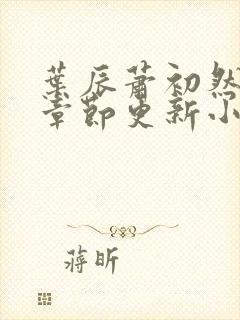 葉辰蕭初然
章節更新小
蔣昕